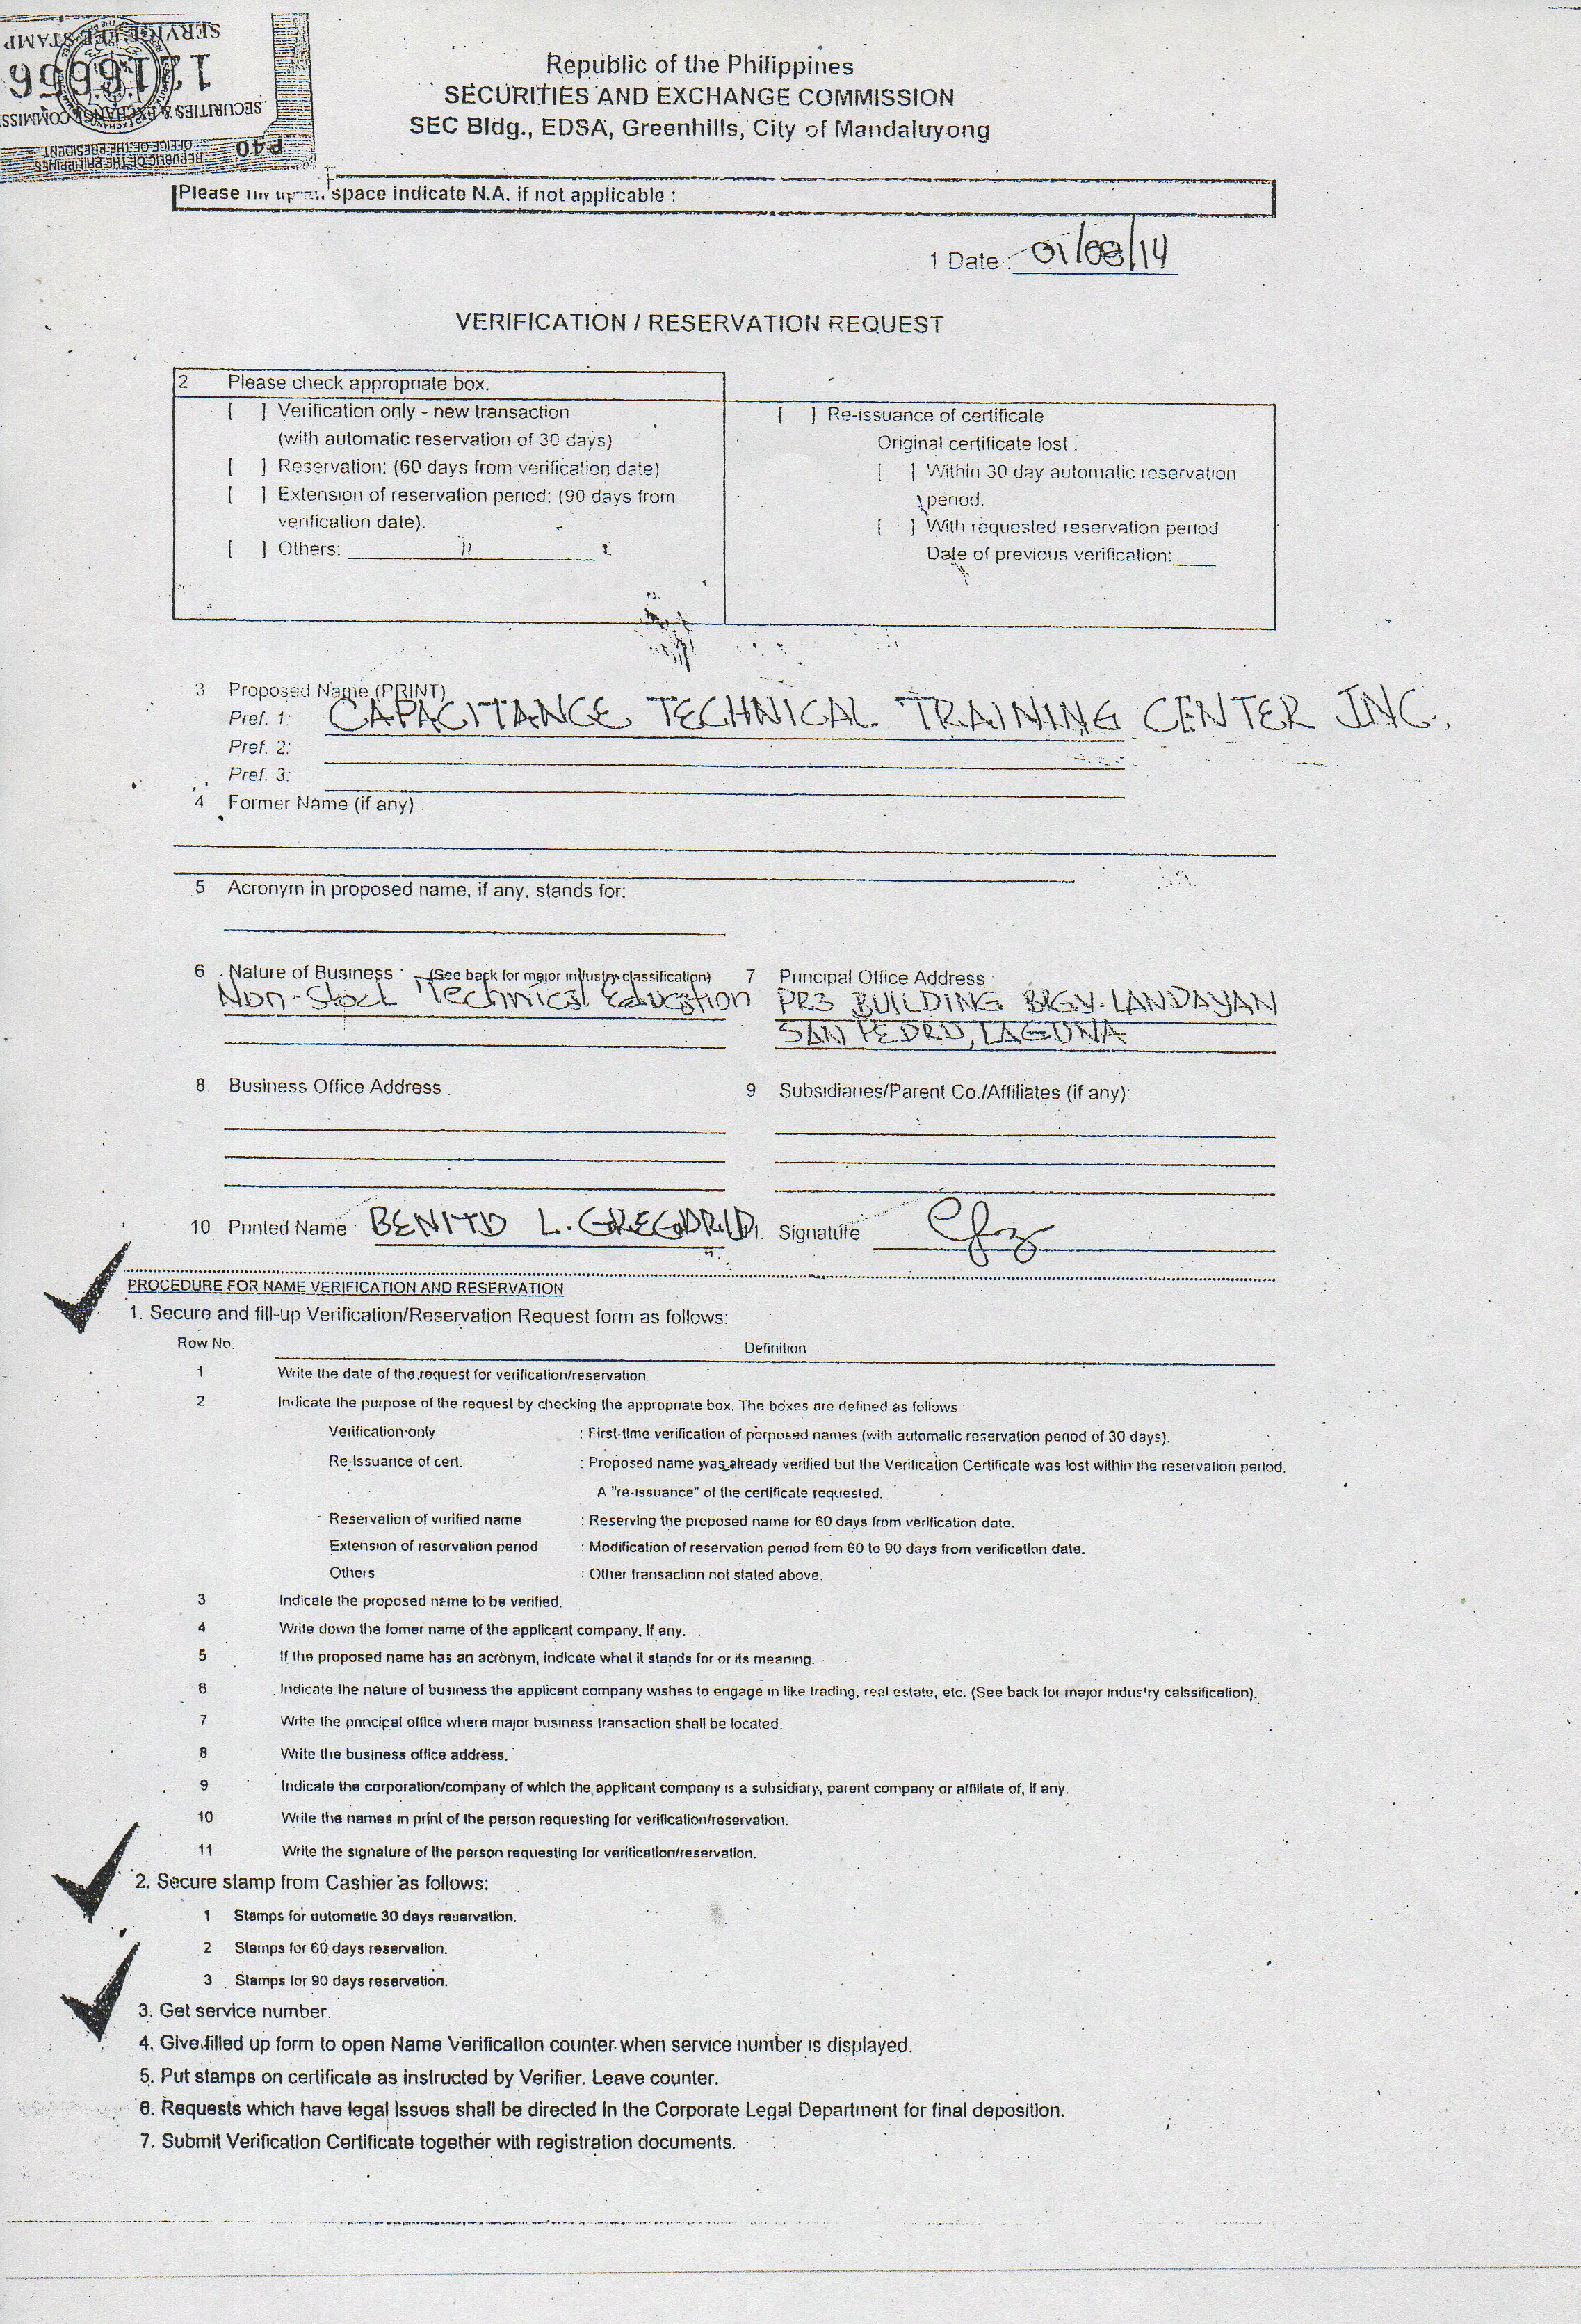 SERVICE FEE STAMP
1216656
SECURITIES & EXCHANGE COMMISSI
OFFICE OF THE PRESIDENT
REPUBLIC OF THE PHILIPPINES
P40
Republic of the Philippines
SECURITIES AND EXCHANGE COMMISSION
SEC Bldg., EDSA, Greenhills, City of Mandaluyong
Please space indicate N.A. if not applicable :
1 Date : 01/08/14
VERIFICATION / RESERVATION REQUEST
2 Please check appropriate box.
[ ] Verification only - new transaction
(with automatic reservation of 30 days)
[ ] Reservation: (60 days from verification date)
[ ] Extension of reservation period: (90 days from
verification date).
[ ] Others:
[ ] Re-issuance of certificate
Original certificate lost .
[ ] Within 30 day automatic reservation
period.
[ ] With requested reservation period
Date of previous verification:
3 Proposed Name (PRINT)
Pref. 1: CAPACITANCE TECHNICAL TRAINING CENTER INC.
Pref. 2:
Pref. 3:
4 Former Name (if any)
5 Acronym in proposed name, if any, stands for:
6 Nature of Business (See back for major industry classification)
Non-Stock Technical Education
7 Principal Office Address
PR3 BUILDING BRGY. LANDAYAN
SAN PEDRO, LAGUNA
8 Business Office Address
9 Subsidiaries/Parent Co./Affiliates (if any):
10 Printed Name : BENITO L. GREGORIO
11. Signature
PROCEDURE FOR NAME VERIFICATION AND RESERVATION
1. Secure and fill-up Verification/Reservation Request form as follows:
Row No. Definition
1 Write the date of the request for verification/reservation.
2 Indicate the purpose of the request by checking the appropriate box. The boxes are defined as follows
Verification only : First-time verification of porposed names (with automatic reservation period of 30 days).
Re-Issuance of cert. : Proposed name was already verified but the Verification Certificate was lost within the reservation period.
A "re-issuance" of the certificate requested.
Reservation of verified name : Reserving the proposed name for 60 days from verification date.
Extension of reservation period : Modification of reservation period from 60 to 90 days from verification date.
Others : Other transaction not stated above.
3 Indicate the proposed name to be verified.
4 Write down the fomer name of the applicant company, if any.
5 If the proposed name has an acronym, indicate what it stands for or its meaning.
6 Indicate the nature of business the applicant company wishes to engage in like trading, real estate, etc. (See back for major industry calssification).
7 Write the principal office where major business transaction shall be located.
8 Write the business office address.
9 Indicate the corporation/company of which the applicant company is a subsidiary, parent company or affiliate of, if any.
10 Write the names in print of the person requesting for verification/reservation.
11 Write the signature of the person requesting for verification/reservation.
2. Secure stamp from Cashier as follows:
1 Stamps for automatic 30 days reservation.
2 Stamps for 60 days reservation.
3 Stamps for 90 days reservation.
3. Get service number.
4. Give filled up form to open Name Verification counter when service number is displayed.
5. Put stamps on certificate as instructed by Verifier. Leave counter.
6. Requests which have legal issues shall be directed in the Corporate Legal Department for final deposition.
7. Submit Verification Certificate together with registration documents.